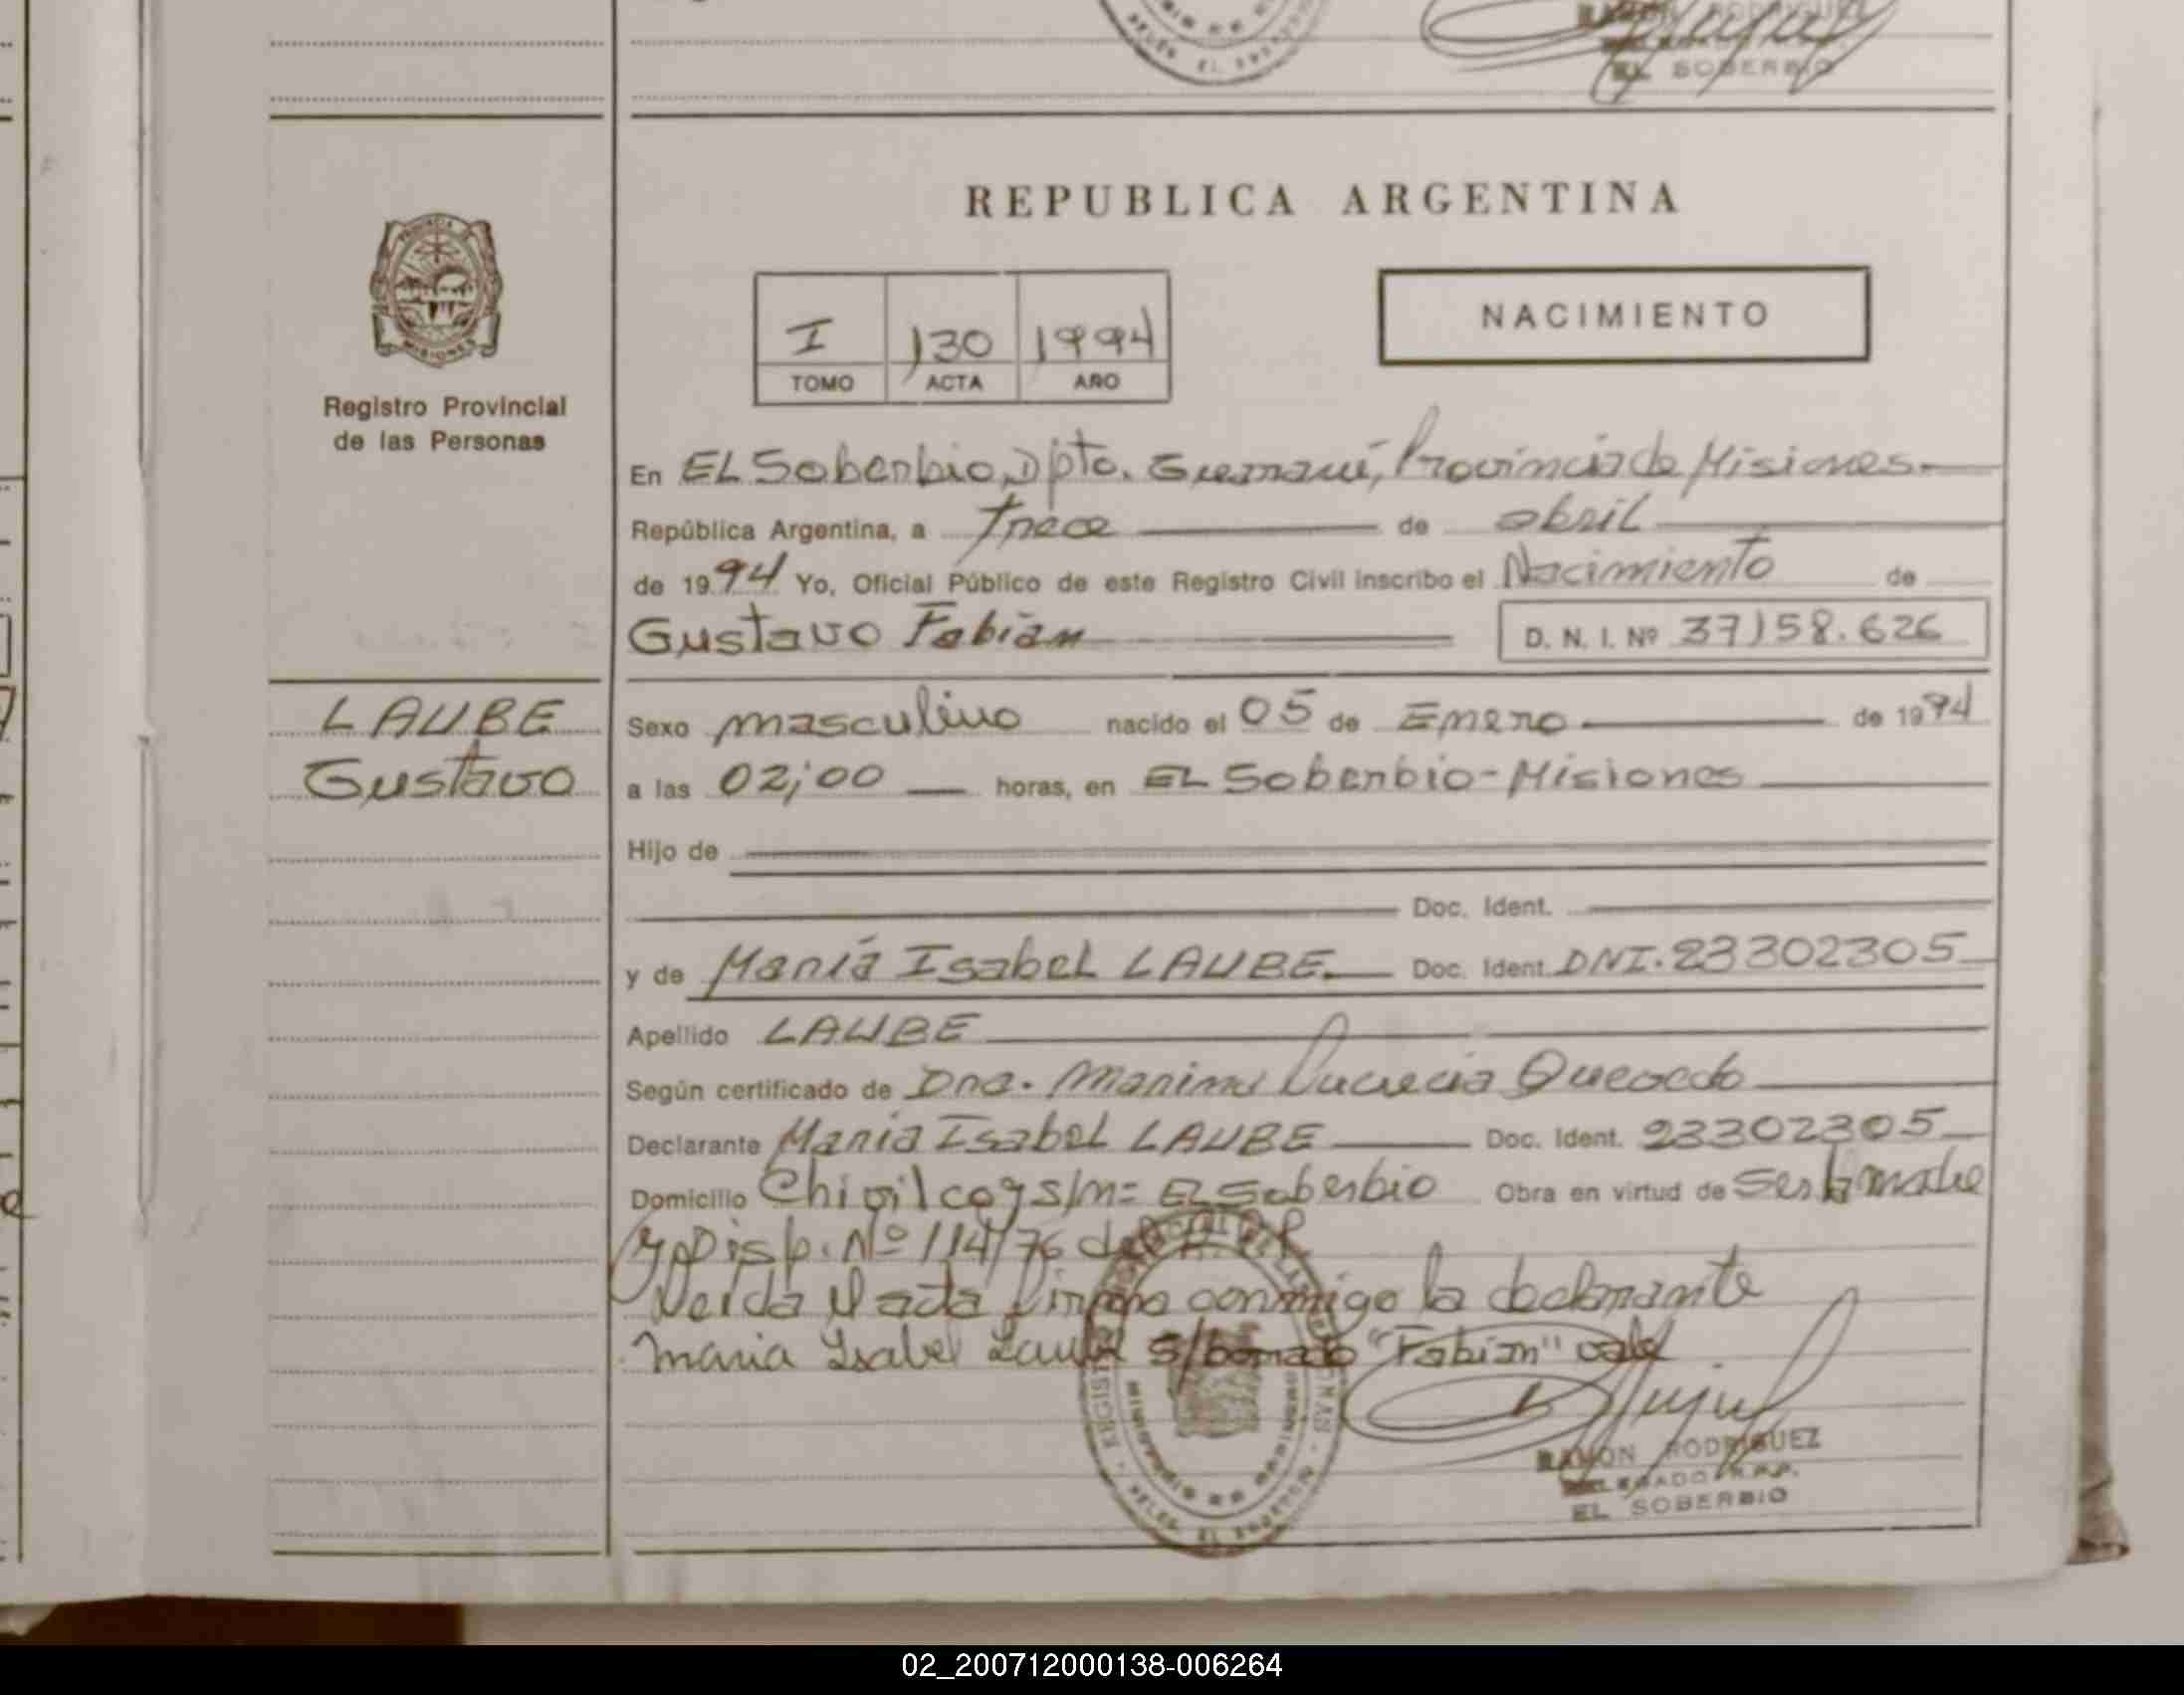 EL SOBERBIO
REPUBLICA ARGENTINA
PROVINCIA DE
MISIONES
Registro Provincial
de las Personas
I 130 1994
TOMO ACTA AÑO
NACIMIENTO
En EL Soberbio, Dpto. Guaraní, Provincia de Misiones.
República Argentina, a trece de abril
de 1994 Yo, Oficial Público de este Registro Civil inscribo el Nacimiento de
Gustavo Fabián D. N. I. Nº 37158.626
LAUBE
Gustavo
Sexo masculino nacido el 05 de Enero de 1994
a las 02;00 horas, en EL Soberbio-Misiones
Hijo de
Doc. Ident.
y de María Isabel LAUBE. Doc. Ident. DNI. 23302305
Apellido LAUBE
Según certificado de Dra. Marina Lucrecia Quevedo
Declarante María Isabel LAUBE Doc. Ident. 23302305
Domicilio Chivilcoy s/n= EL Soberbio Obra en virtud de Ser la madre
y Disp. Nº 114/76 de
Leída el acta firma conmigo la declarante
Maria Isabel Laube S/borrado "Fabián" vale
RAMON RODRIGUEZ
DELEGADO R.P.P.
EL SOBERBIO
02_200712000138-006264